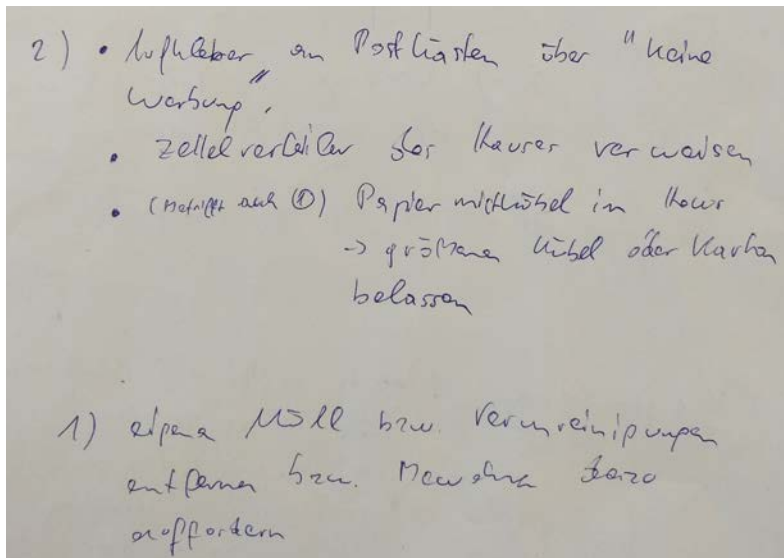 2) • Aufkleber an Postkästen über "keine
Werbung".
• Zettelverteiler des Hauses verweisen
• (betrifft auch ①) Papiermistkübel im Haus
→ größerer Kübel oder Karton
belassen
1) eigene Müll bzw. Verunreinigungen
entfernen bzw. Bewohner dazu
auffordern